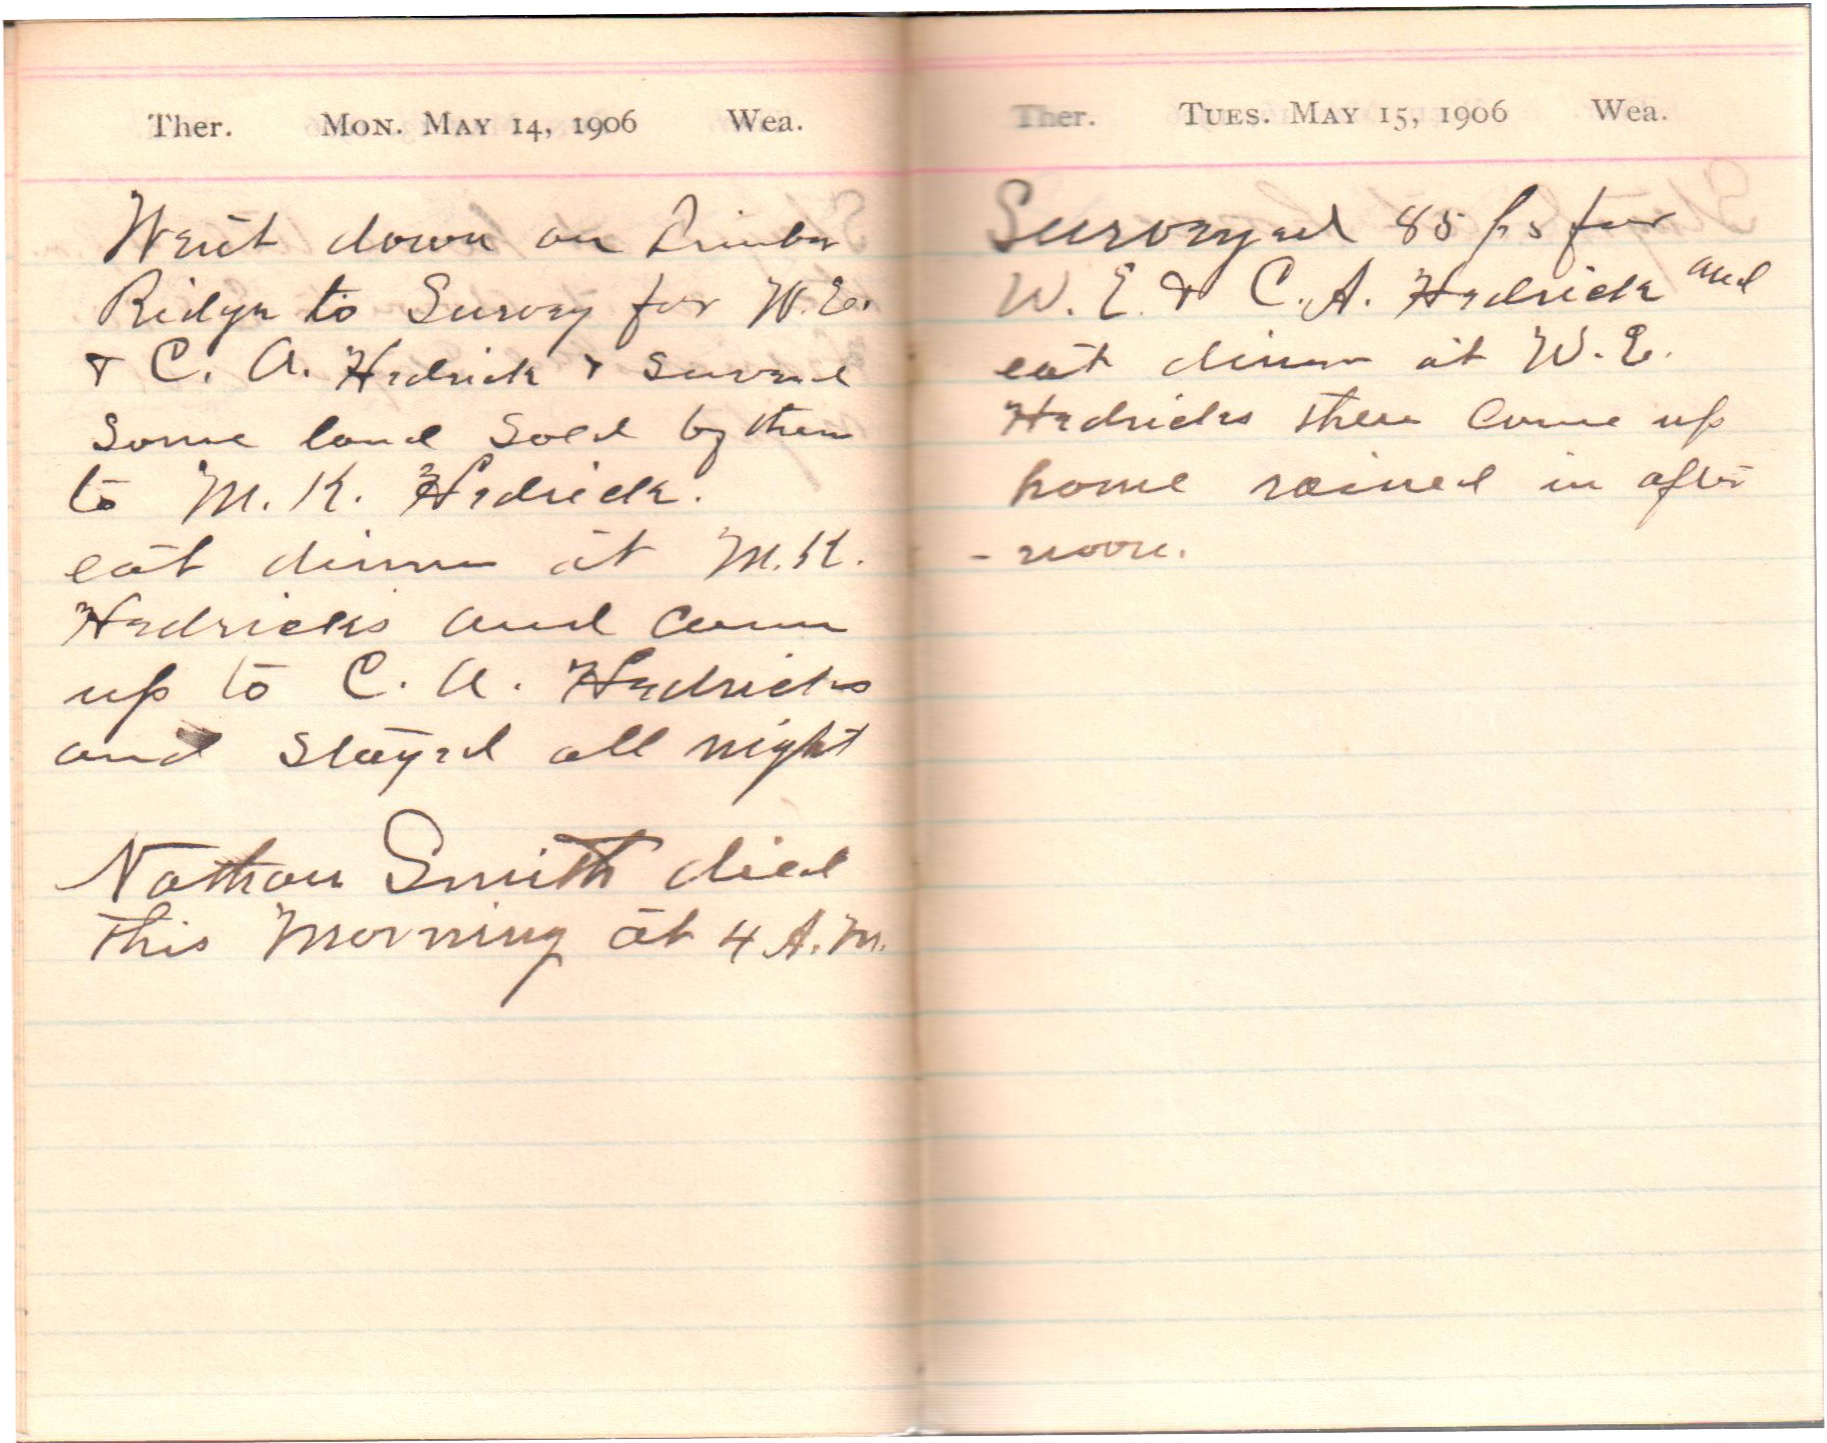 Ther. Mon. May 14, 1906 Wea.
Went down on Timber
Ridge to Survey for W.E.
& C. A. Hedrick &
Some land Sold by them
to M. K. Hedrick.
eat dinner at M.K.
Hedricks and come
up to C. A. Hedricks
and Stayed all night
Nathan Smith died
this Morning at 4 A.M.
Ther. Tues. May 15, 1906 Wea.
Surveyed 85 ps for
W. E. & C. A. Hedrick and
eat dinner at W. E.
Hedricks then Come up
home rained in after
- noon.